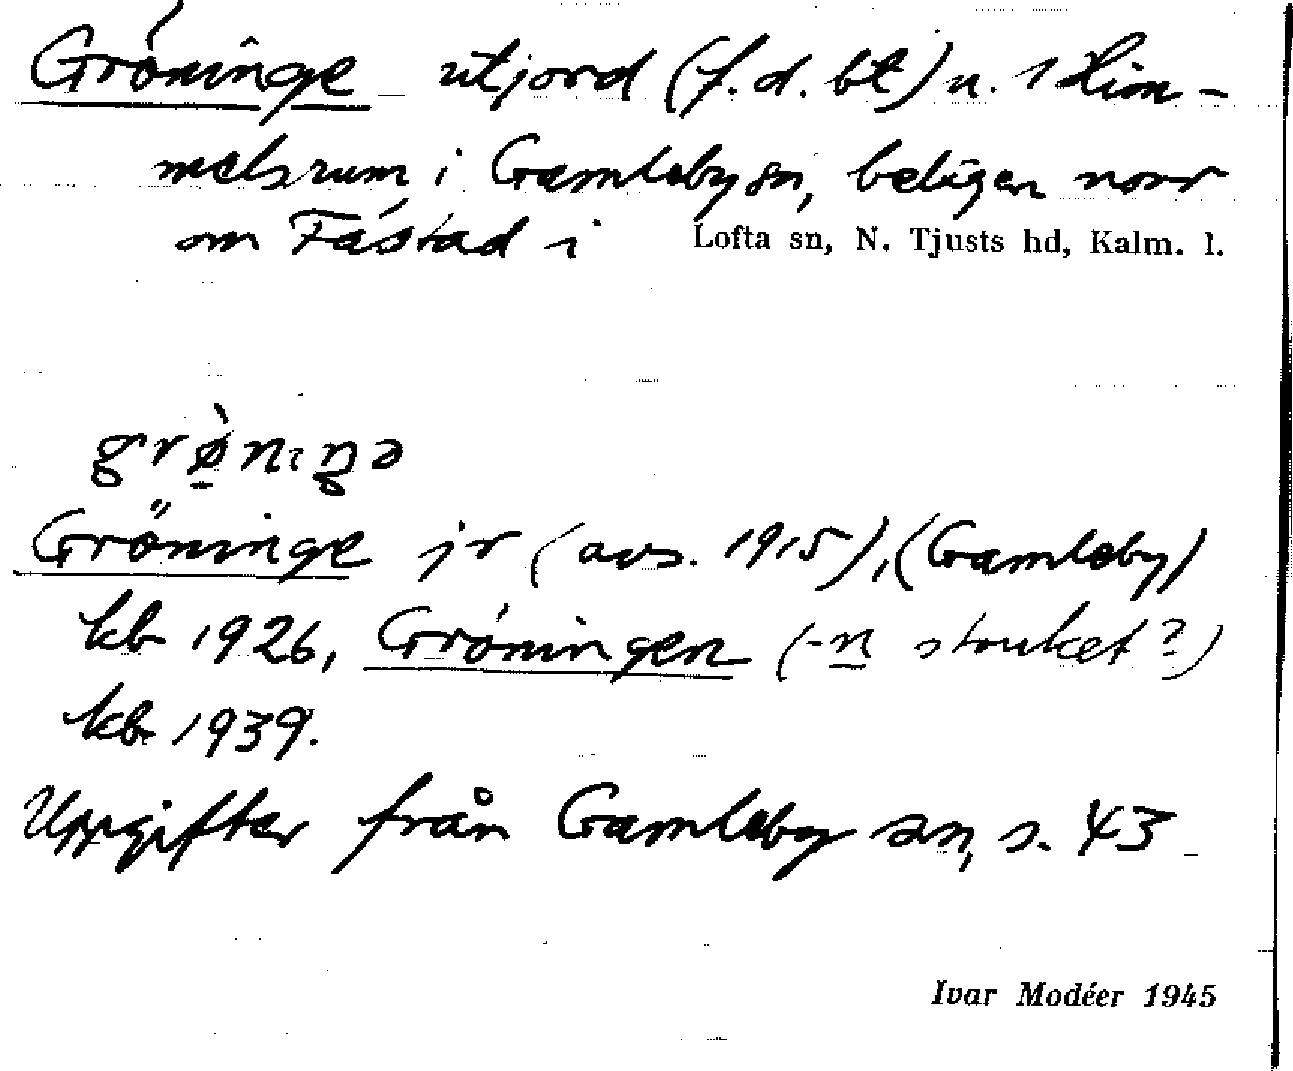 Gröninge utjord (f.d. bt) u. 1 Him-
melsrum i Gamleby sn, belägen norr
om Fästad i Lofta sn, N. Tjusts hd, Kalm. l.
grø̠̀nıŋə
Gröninge jr (avs. 1915), (Gamleby)
kb 1926, Gröningen (-n struket?)
kb 1939.
Uppgifter från Gamleby sn, s. 43
Ivar Modéer 1945